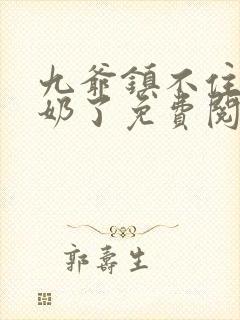 九爺鎮不住
奶了免費閱
郭壽生